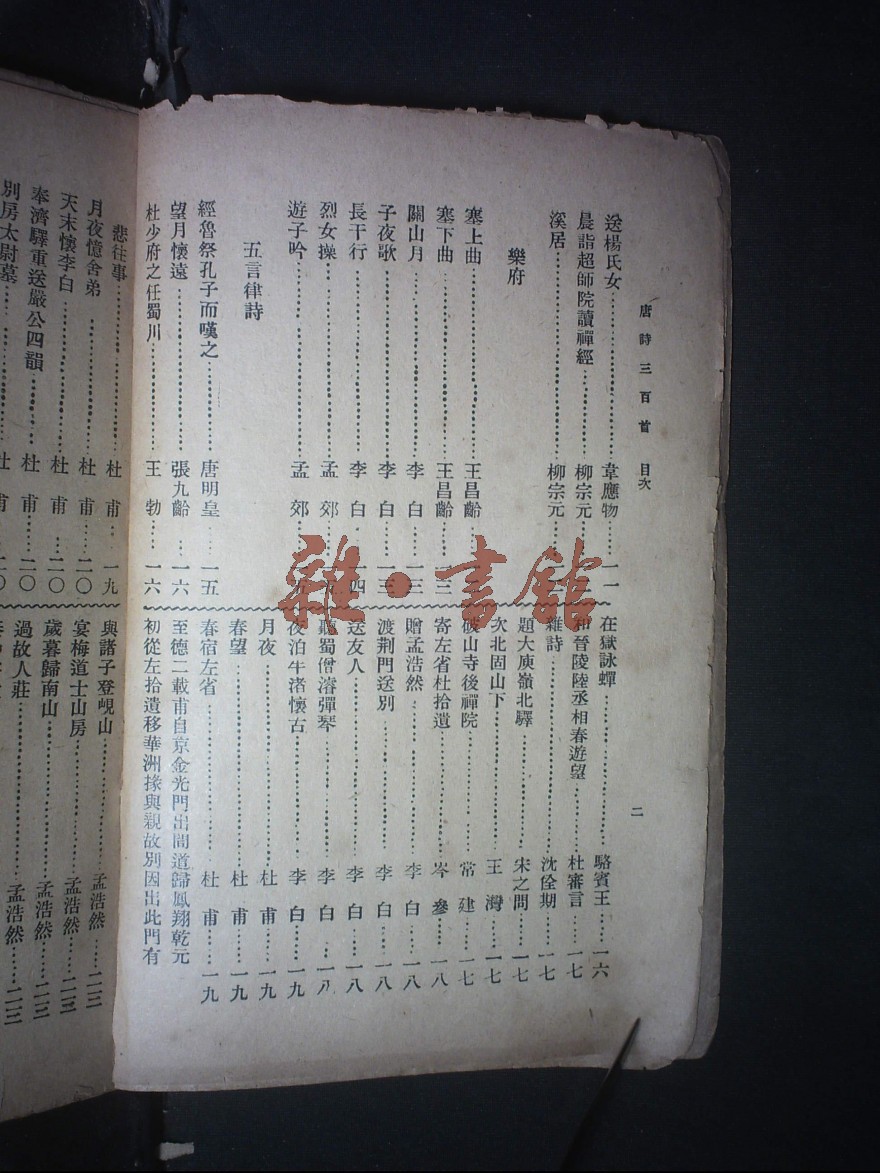 唐詩三百首 目次
二
送楊氏女……韋應物……一一
晨詣超師院讀禪經……柳宗元
溪居……柳宗元
樂府
塞上曲……王昌齡
塞下曲……王昌齡……三
關山月……李白……一三
子夜歌……李白……一三
長干行……李白……一四
烈女操……孟郊
遊子吟……孟郊
五言律詩
經魯祭孔子而嘆之……唐明皇……一五
望月懷遠……張九齡……一六
杜少府之任蜀川……王勃……一六
在獄詠蟬……駱賓王……一六
和晉陵陸丞相春遊望……杜審言……一七
雜詩……沈佺期……一七
題大庾嶺北驛……宋之問……一七
次北固山下……王灣……一七
破山寺後禪院……常建……一七
寄左省杜拾遺……岑參……一八
贈孟浩然……李白……一八
渡荆門送別……李白……一八
送友人……李白……一八
聽蜀僧濬彈琴……李白……一八
夜泊牛渚懷古……李白……一九
月夜……杜甫……一九
春望……杜甫……一九
春宿左省……杜甫……一九
至德二載甫自京金光門出間道歸鳳翔乾元
初從左拾遺移華洲掾與親故別因出此門有
悲往事……杜甫……一九
月夜憶舍弟……杜甫……二〇
天末懷李白……杜甫……二〇
奉濟驛重送嚴公四韻……杜甫……二〇
別房太尉墓……杜甫……二〇
與諸子登峴山……孟浩然……二三
宴梅道士山房……孟浩然……二三
歲暮歸南山……孟浩然……二三
過故人莊……孟浩然……二三
雜·書館